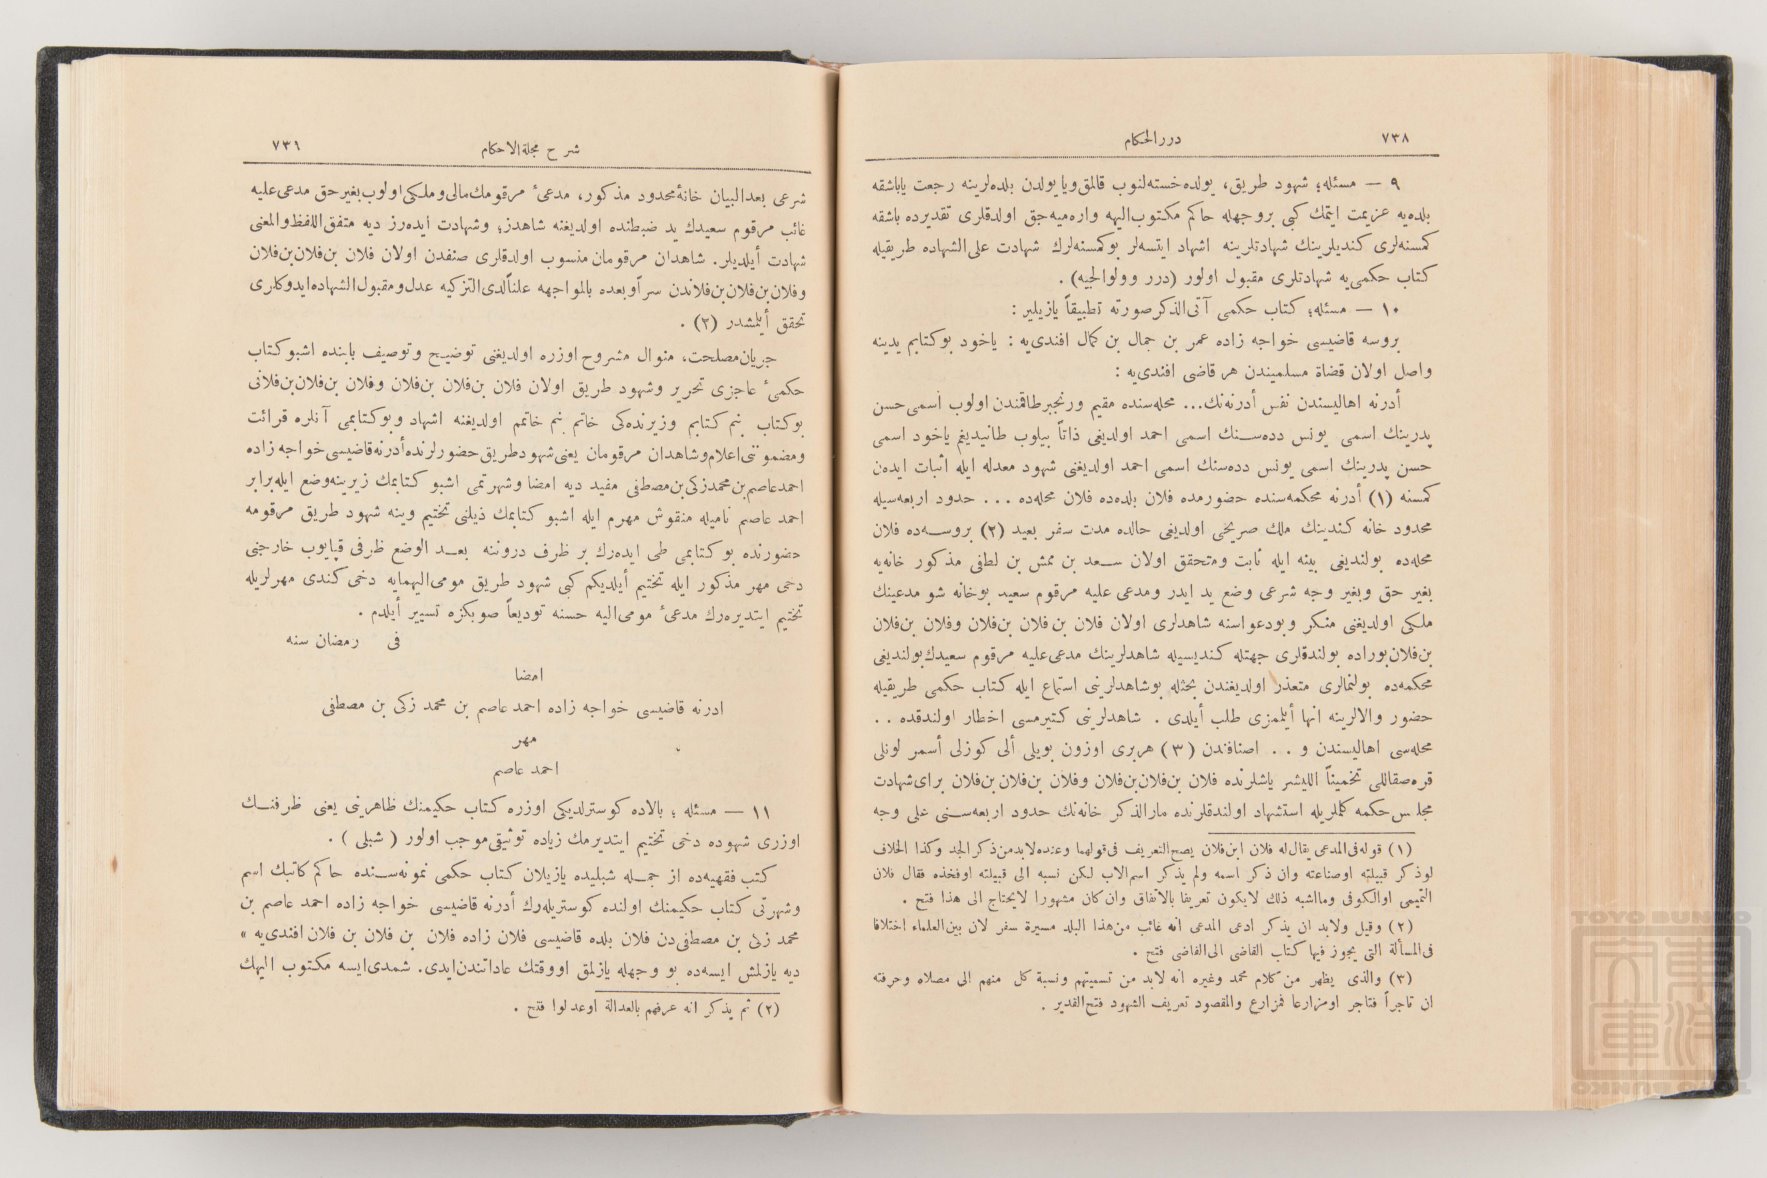 ٧٣٨
دررالحكام
٩ — مسئله؛ شهود طريق، يولده خسته‌لنوب قالمق ويا يولدن بلده‌لرينه رجعت ياباشقه
بلده‌يه عزيمت ايتمك كبى بروجهله حاكم مكتوب‌اليهه واره‌ميه‌جق اولدقلرى تقديرده باشقه
كمسنه‌لرى كنديلرينك شهادتلرينه اشهاد ايتسه‌لر بوكمسنه‌لرك شهادت على‌الشهاده طريقيله
كتاب حكمى‌يه شهادتلرى مقبول اولور (درر وولوالجيه) .
١٠ — مسئله؛ كتاب حكمى آتى‌الذكر صورته تطبيقاً يازيلير :
بروسه قاضيسى خواجه زاده عمر بن جمال بن كمال افندى‌يه : ياخود بوكتابم يدينه
واصل اولان قضاة مسلميندن هر قاضى افندى‌يه :
أدرنه اهاليسندن نفس أدرنه‌نك... محله‌سنده مقيم ورنجبرطاقمندن اولوب اسمى حسن
پدرينك اسمى يونس دده‌سنك اسمى احمد اولديغى ذاتاً بيلوب طانيديغم ياخود اسمى
حسن پدرينك اسمى يونس دده‌سنك اسمى احمد اولديغنى شهود معدله ايله اثبات ايدن
كمسنه (١) أدرنه محكمه‌سنده حضورمده فلان بلده‌ده فلان محله‌ده ... حدود اربعه‌سيله
محدود خانه كندينك ملك صريحى اولديغى حالده مدت سفر بعيد (٢) بروسه‌ده فلان
محله‌ده بولنديغى بينه ايله ثابت ومتحقق اولان سعد بن ممش بن لطفى مذكور خانه‌يه
بغير حق وبغير وجه شرعى وضع يد ايدر ومدعى عليه مرقوم سعيد بوخانه شو مدعينك
ملكى اولديغنى منكر وبودعواسنه شاهدلرى اولان فلان بن فلان بن‌فلان وفلان بن‌فلان
بن‌فلان بوراده بولندقلرى جهتله كنديسيله شاهدلرينك مدعى‌عليه مرقوم سعيدك بولنديغى
محكمه‌ده بولنمالرى متعذر اولديغندن بحثله بوشاهدلرينى استماع ايله كتاب حكمى طريقيله
حضور والالرينه انها أيلممزى طلب أيلدى . شاهدلرينى كتيرمسى اخطار اولندقده . .
محله‌سى اهاليسندن و . . اصنافندن (٣) هربرى اوزون بويلى ألى كوزلى أسمر لونلى
قره‌صقاللى تخميناً اللیشر ياشلرنده فلان بن‌فلان‌بن‌فلان وفلان بن‌فلان‌بن‌فلان براى‌شهادت
مجلس حكمه كلملريله استشهاد اولندقلرنده مارالذكر خانه‌نك حدود اربعه‌سنى على وجه
(١) قوله فى‌المدعى يقال‌له فلان ابن‌فلان يصح‌التعريف فى‌قولهما وعنده لابدمن‌ذكرالجد وكذا الخلاف
لوذكر قبيلته اوصناعته وان ذكر اسمه ولم يذكر اسم‌الاب لكن نسبه الى قبيلته اوفخذه فقال فلان
التميمى اوالكوفى ومااشبه ذلك لايكون تعريفا بالاتفاق وان‌كان مشهورا لايحتاج الى هذا فتح .
(٢) وقيل ولابد ان يذكر ادعى المدعى انه غائب من‌هذا البلد مسيرة سفر لان بين‌العلماء اختلافا
فى‌المسألة التى يجوز فيها كتاب القاضى الى‌القاضى فتح .
(٣) والذى يظهر من كلام محمد وغيره انه لابد من تسميتهم ونسبة كل منهم الى مصلاه وحرفته
ان تاجراً فتاجر اومزارعا فمزارع والمقصود تعريف الشهود فتح‌القدير .
شرح مجلة‌الاحكام
٧٣٩
شرعى بعدالبيان خانه‌ٔ محدود مذكور، مدعئ مرقومك مالى‌وملكى اولوب‌بغيرحق مدعى‌عليه
غائب مرقوم سعيدك يد ضبطنده اولديغنه شاهدز؛ وشهادت ايده‌رز ديه متفق‌اللفظ‌والمعنى
شهادت أيلديلر. شاهدان مرقومان منسوب اولدقلرى صنفدن اولان فلان بن‌فلان‌بن‌فلان
وفلان‌بن‌فلان‌بن‌فلاندن سراً وبعده بالمواجهه علناً لدى‌التزكيه عدل‌ومقبول‌الشهاده‌ايدوكلرى
تحقق أيلمشدر (٢) .
جريان‌مصلحت، منوال مشروح اوزره اولديغنى توضيح وتوصيف بابنده اشبوكتاب
حكمئ عاجزى تحرير وشهود طريق اولان فلان بن‌فلان بن‌فلان وفلان بن‌فلان‌بن‌فلانى
بوكتاب بنم كتابم وزيرنده‌كى خاتم بنم خاتمم اولديغنه اشهاد وبوكتابمى آنلره قرائت
ومضموننى‌اعلام‌وشاهدان مرقومان يعنى‌شهودطريق‌حضورلرنده‌أدرنه‌قاضيسى‌خواجه زاده
احمدعاصم‌بن‌محمدزكى‌بن‌مصطفى مفيد ديه امضا وشهرتمى اشبو كتابمك زيرينه‌وضع ايله‌برابر
احمد عاصم ناميله منقوش مهرم ايله اشبو كتابمك ذيلنى تختيم وينه شهود طريق مرقومه
حضورنده بو كتابمى طى ايده‌رك بر ظرف دروننه بعد الوضع ظرفى قپايوب خارجنى
دخى مهر مذكور ايله تختيم أيلديكم كبى شهود طريق مومى‌اليهمايه دخى كندى مهرلريله
تختيم ايتديره‌رك مدعئ مومى‌اليه حسنه توديعاً صوبكزه تسيير أيلدم .
فى رمضان سنه
امضا
ادرنه قاضيسى خواجه زاده احمد عاصم بن محمد زكى بن مصطفى
مهر
احمد عاصم
١١ — مسئله ؛ بالاده كوسترلديكى اوزره كتاب حكمينك ظاهرينى يعنى ظرفنك
اوزرى شهوده دخى تختيم ايتديرمك زياده توثيقى‌موجب اولور ( شبلى ) .
كتب فقهيه‌ده از جمله شبليده يازيلان كتاب حكمى نمونه‌سنده حاكم كاتبك اسم
وشهرتى كتاب حكمينك اولنده كوستريله‌رك أدرنه قاضيسى خواجه زاده احمد عاصم بن
محمد زكى بن مصطفى‌دن فلان بلده قاضيسى فلان زاده فلان بن فلان بن فلان افندى‌يه »
ديه يازلمش ايسه‌ده بو وجهله يازلمق اووقتك عاداتندن‌ايدى. شمدى‌ايسه مكتوب اليهك
(٢) ثم يذكر انه عرفهم بالعدالة اوعدلوا فتح .
TOYO BUNKO
東洋文庫
TOYO BUNKO